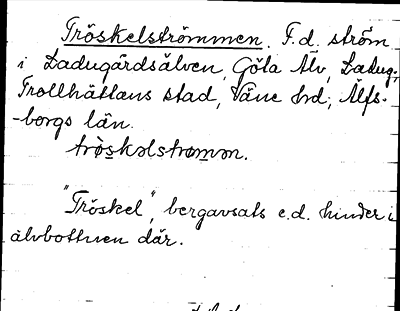 Tröskelströmmen. F.d. ström
i Ladugårdsälven, Göta Älv, Ladug.,
Trollhättans stad, Väne hrd; Älfs-
-borgs län.
trɔ̀skəlstrømən.
"Tröskel", bergavsats e.d. hinder i
älvbottnen där.